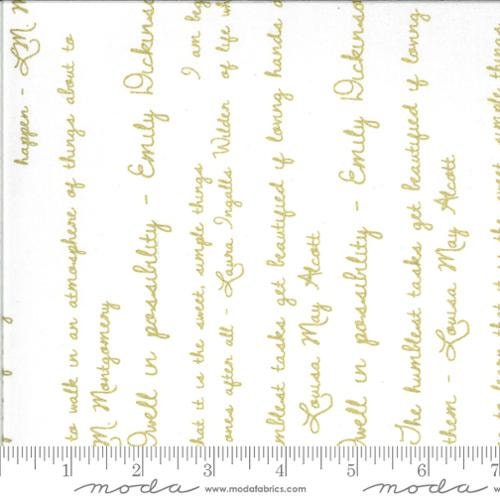 happen - L.M. M
to walk in an atmosphere of things about to
M. Montgomery
Dwell in possibility - Emily Dickinso
hat it is the sweet, simple things I am beg
ones after all - Laura Ingalls Wilder of life wh
mblest tasks get beautified if loving hands d
Louisa May Alcott
Dwell in possibility - Emily Dickinso
The humblest tasks get beautified if loving
them - Louisa May Alcott
1 2 3 4 5 6 7
moda www.modafabrics.com moda